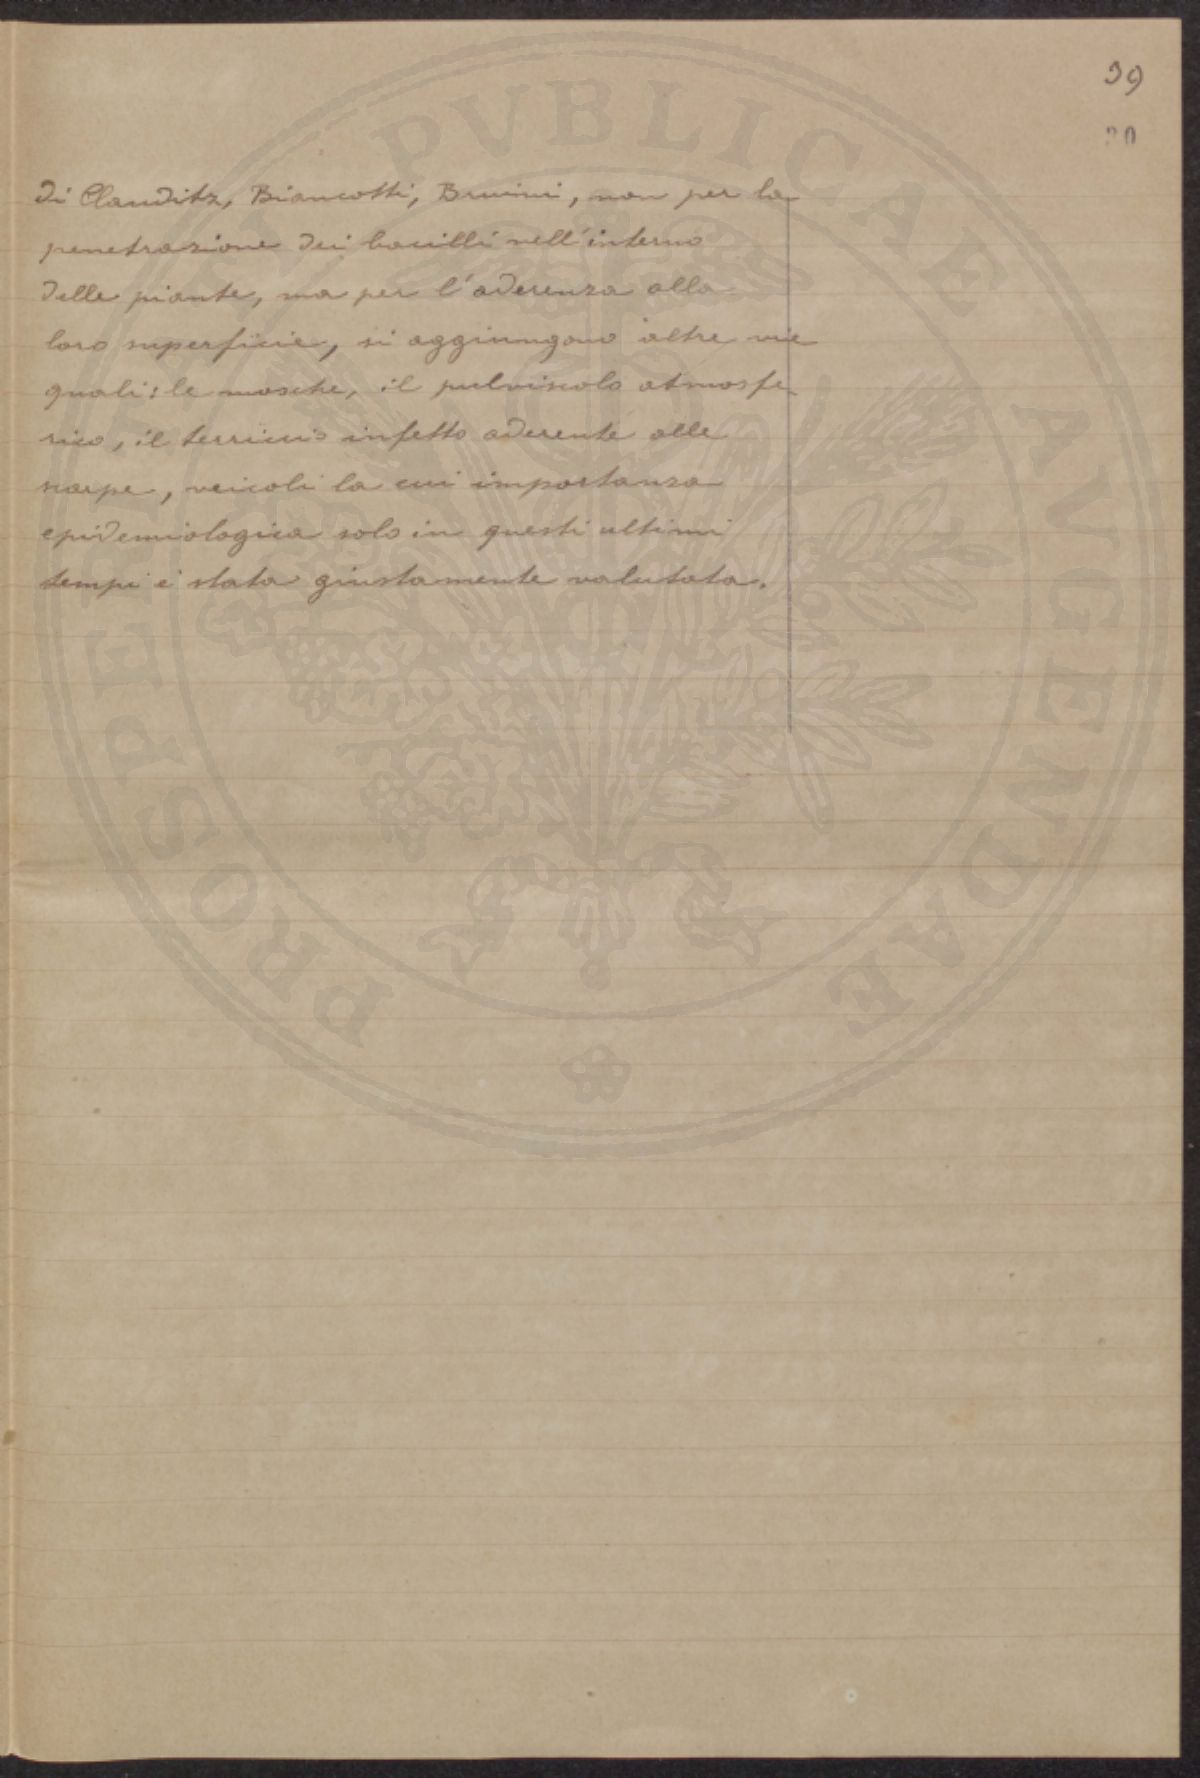 39
20
di Clauditz, Biancotti, Bruini, non per la
penetrazione dei bacilli nell'interno
delle piante, ma per l'aderenza alla
loro superficie, si aggiungono altre vie
quali: le mosche, il pulviscolo atmosfe
rico, il terriccio infetto aderente alle
scarpe, veicoli la cui importanza
epidemiologica solo in questi ultimi
tempi è stata giustamente valutata.
PUBLICAE AUGENDAE
PROSPERITATI